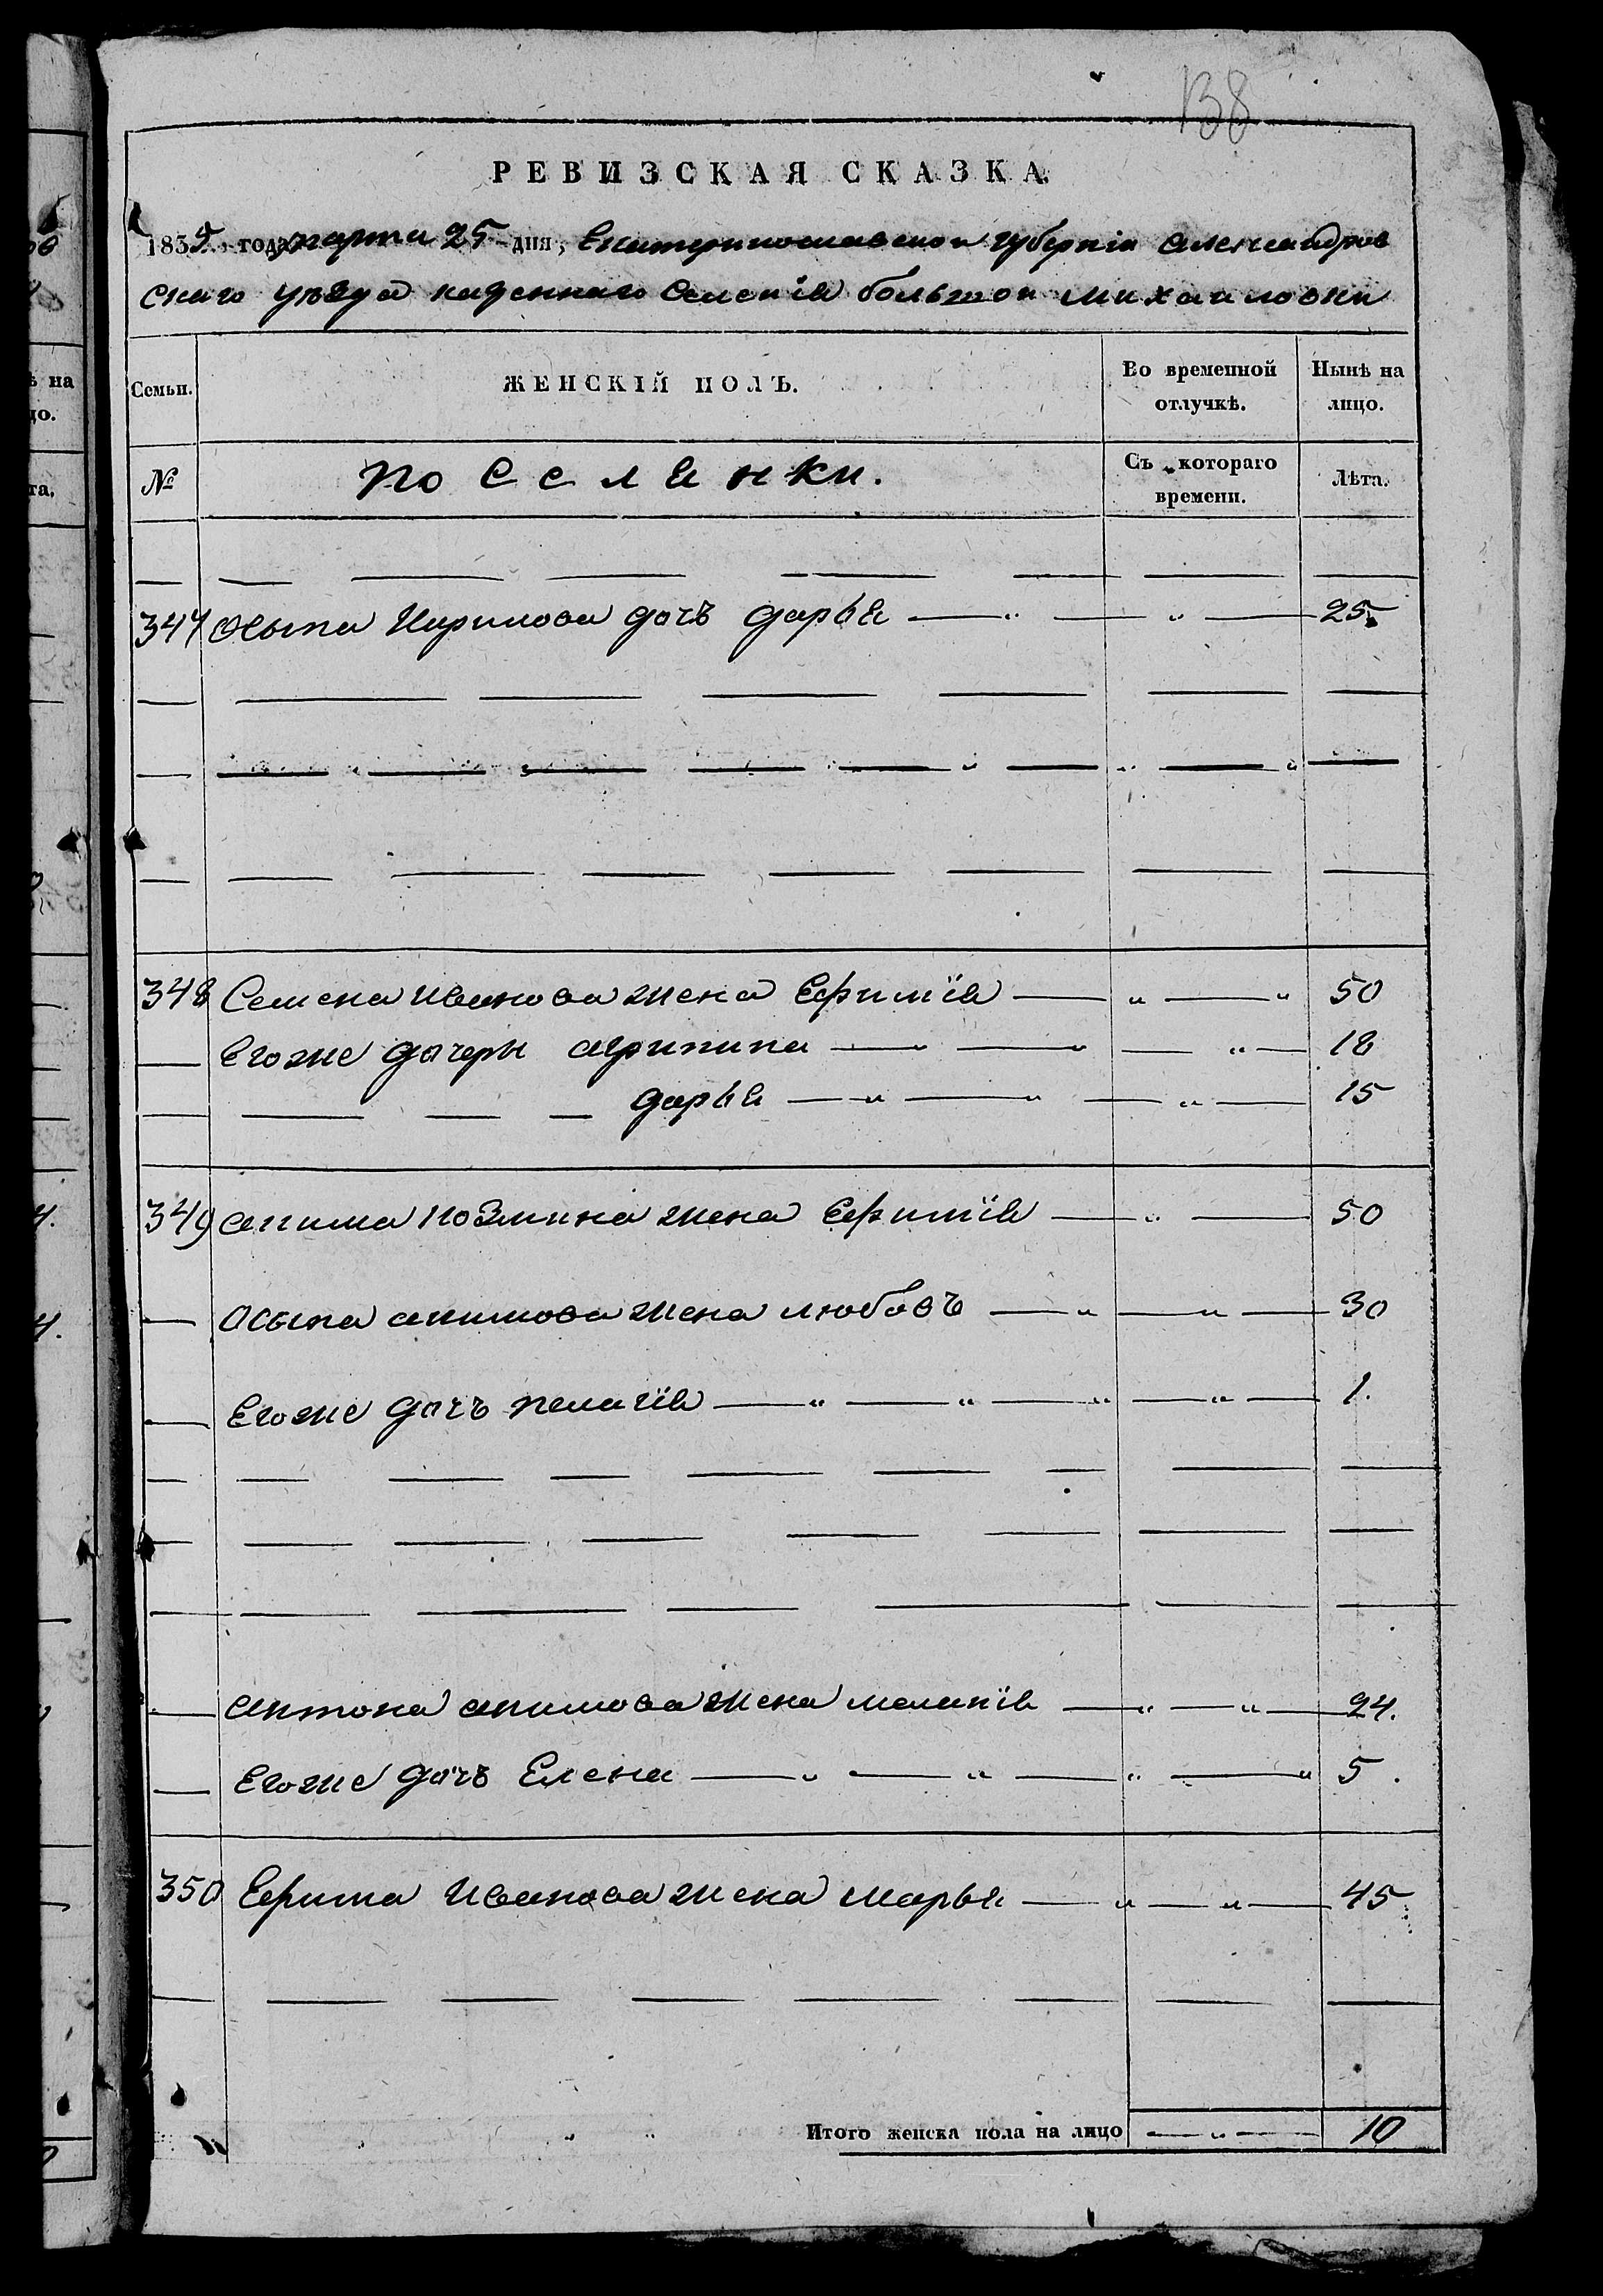 138
РЕВИЗСКАЯ СКАЗКА.
1835 года марта 25 дня, Екатеринославской губерніи Александров
скаго уѣзда казеннаго Селенія большой михаиловки
Семьи. ЖЕНСКІЙ ПОЛЪ. Во временной отлучкѣ. Нынѣ на лицо.
№ поселянки. Съ котораго времени. Лѣта.
347 Осыпа Кирилова дочъ дарья 25
348 Семена иванова жена Ефимія 50
Егоже дочеры агрипина 18
дарья 15
349 акима козмина жена Ефимія 50
Осыпа акимова жена любовъ 30
Егоже дочъ пелагія 1.
антона акимова жена меланія 24.
Егоже дочъ Елена 5.
350 Ефима Иванова жена марья 45
Итого женска пола на лицо 10